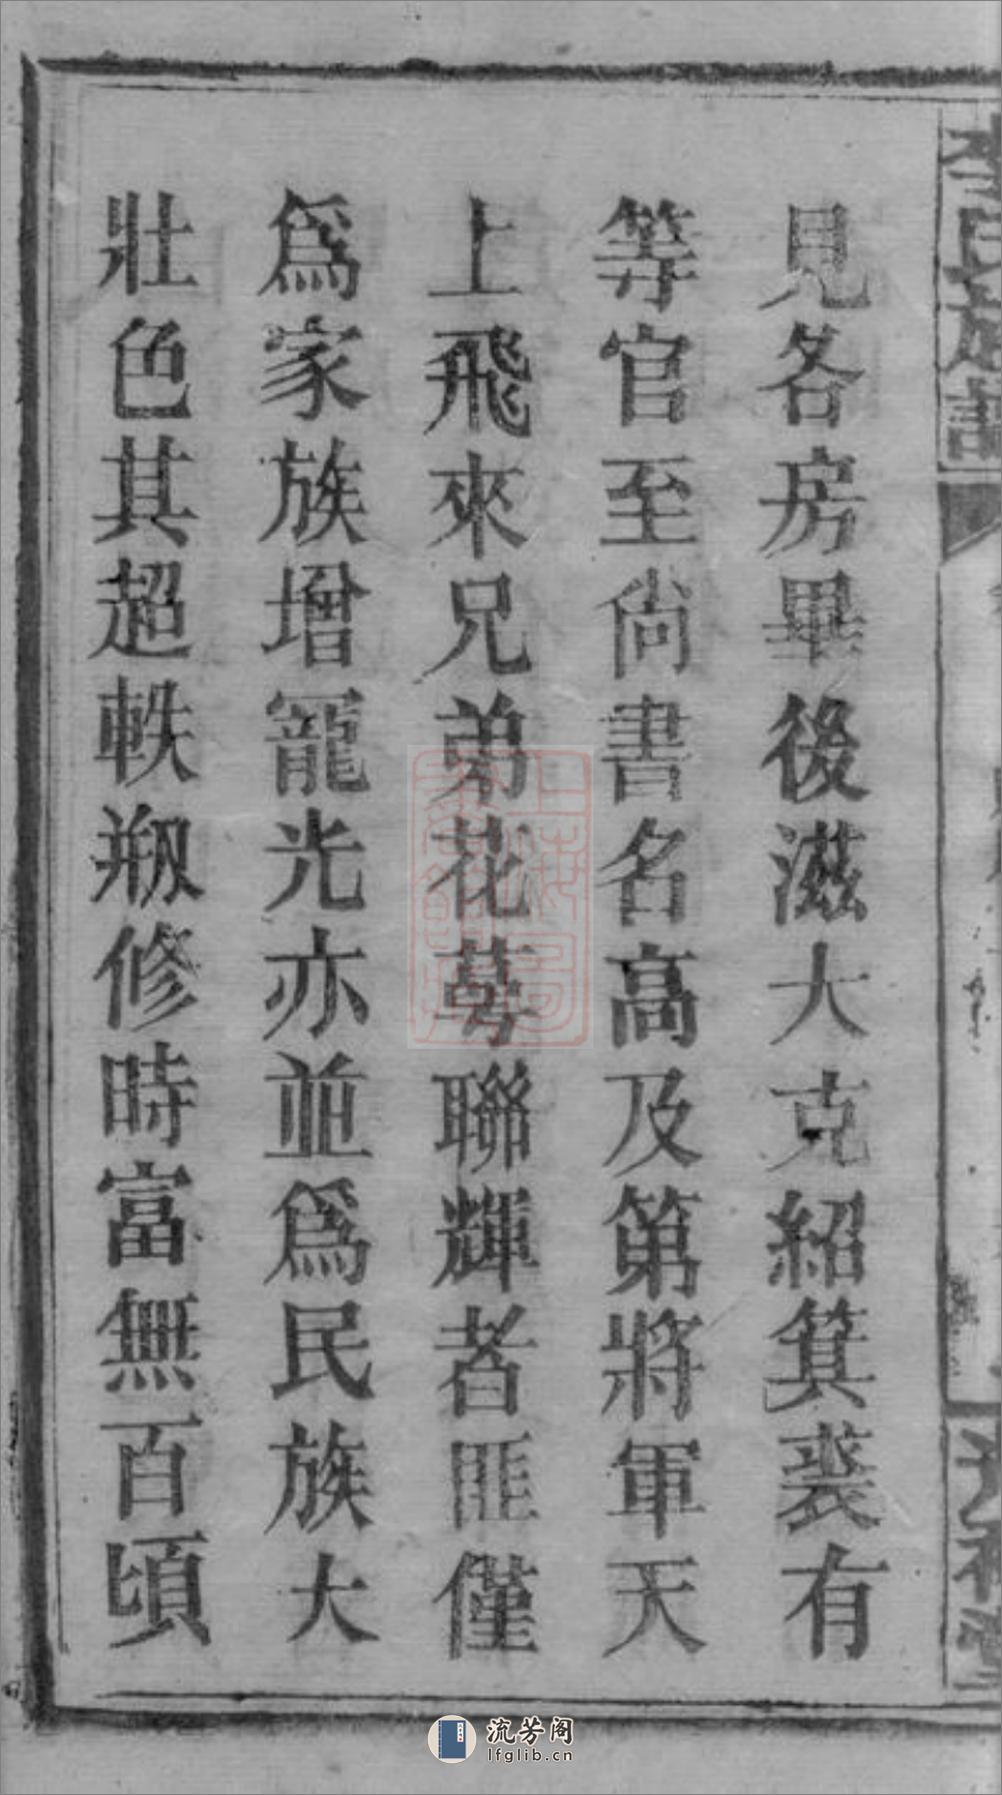 見各房畢後滋大克紹箕裘有
等官至尙書名高及第將軍天
上飛來兄弟花萼聯輝者匪僅
爲家族增寵光亦並爲民族大
壯色其超軼剏修時富無百頃
李氏族譜
流芳阁
lfglib.cn